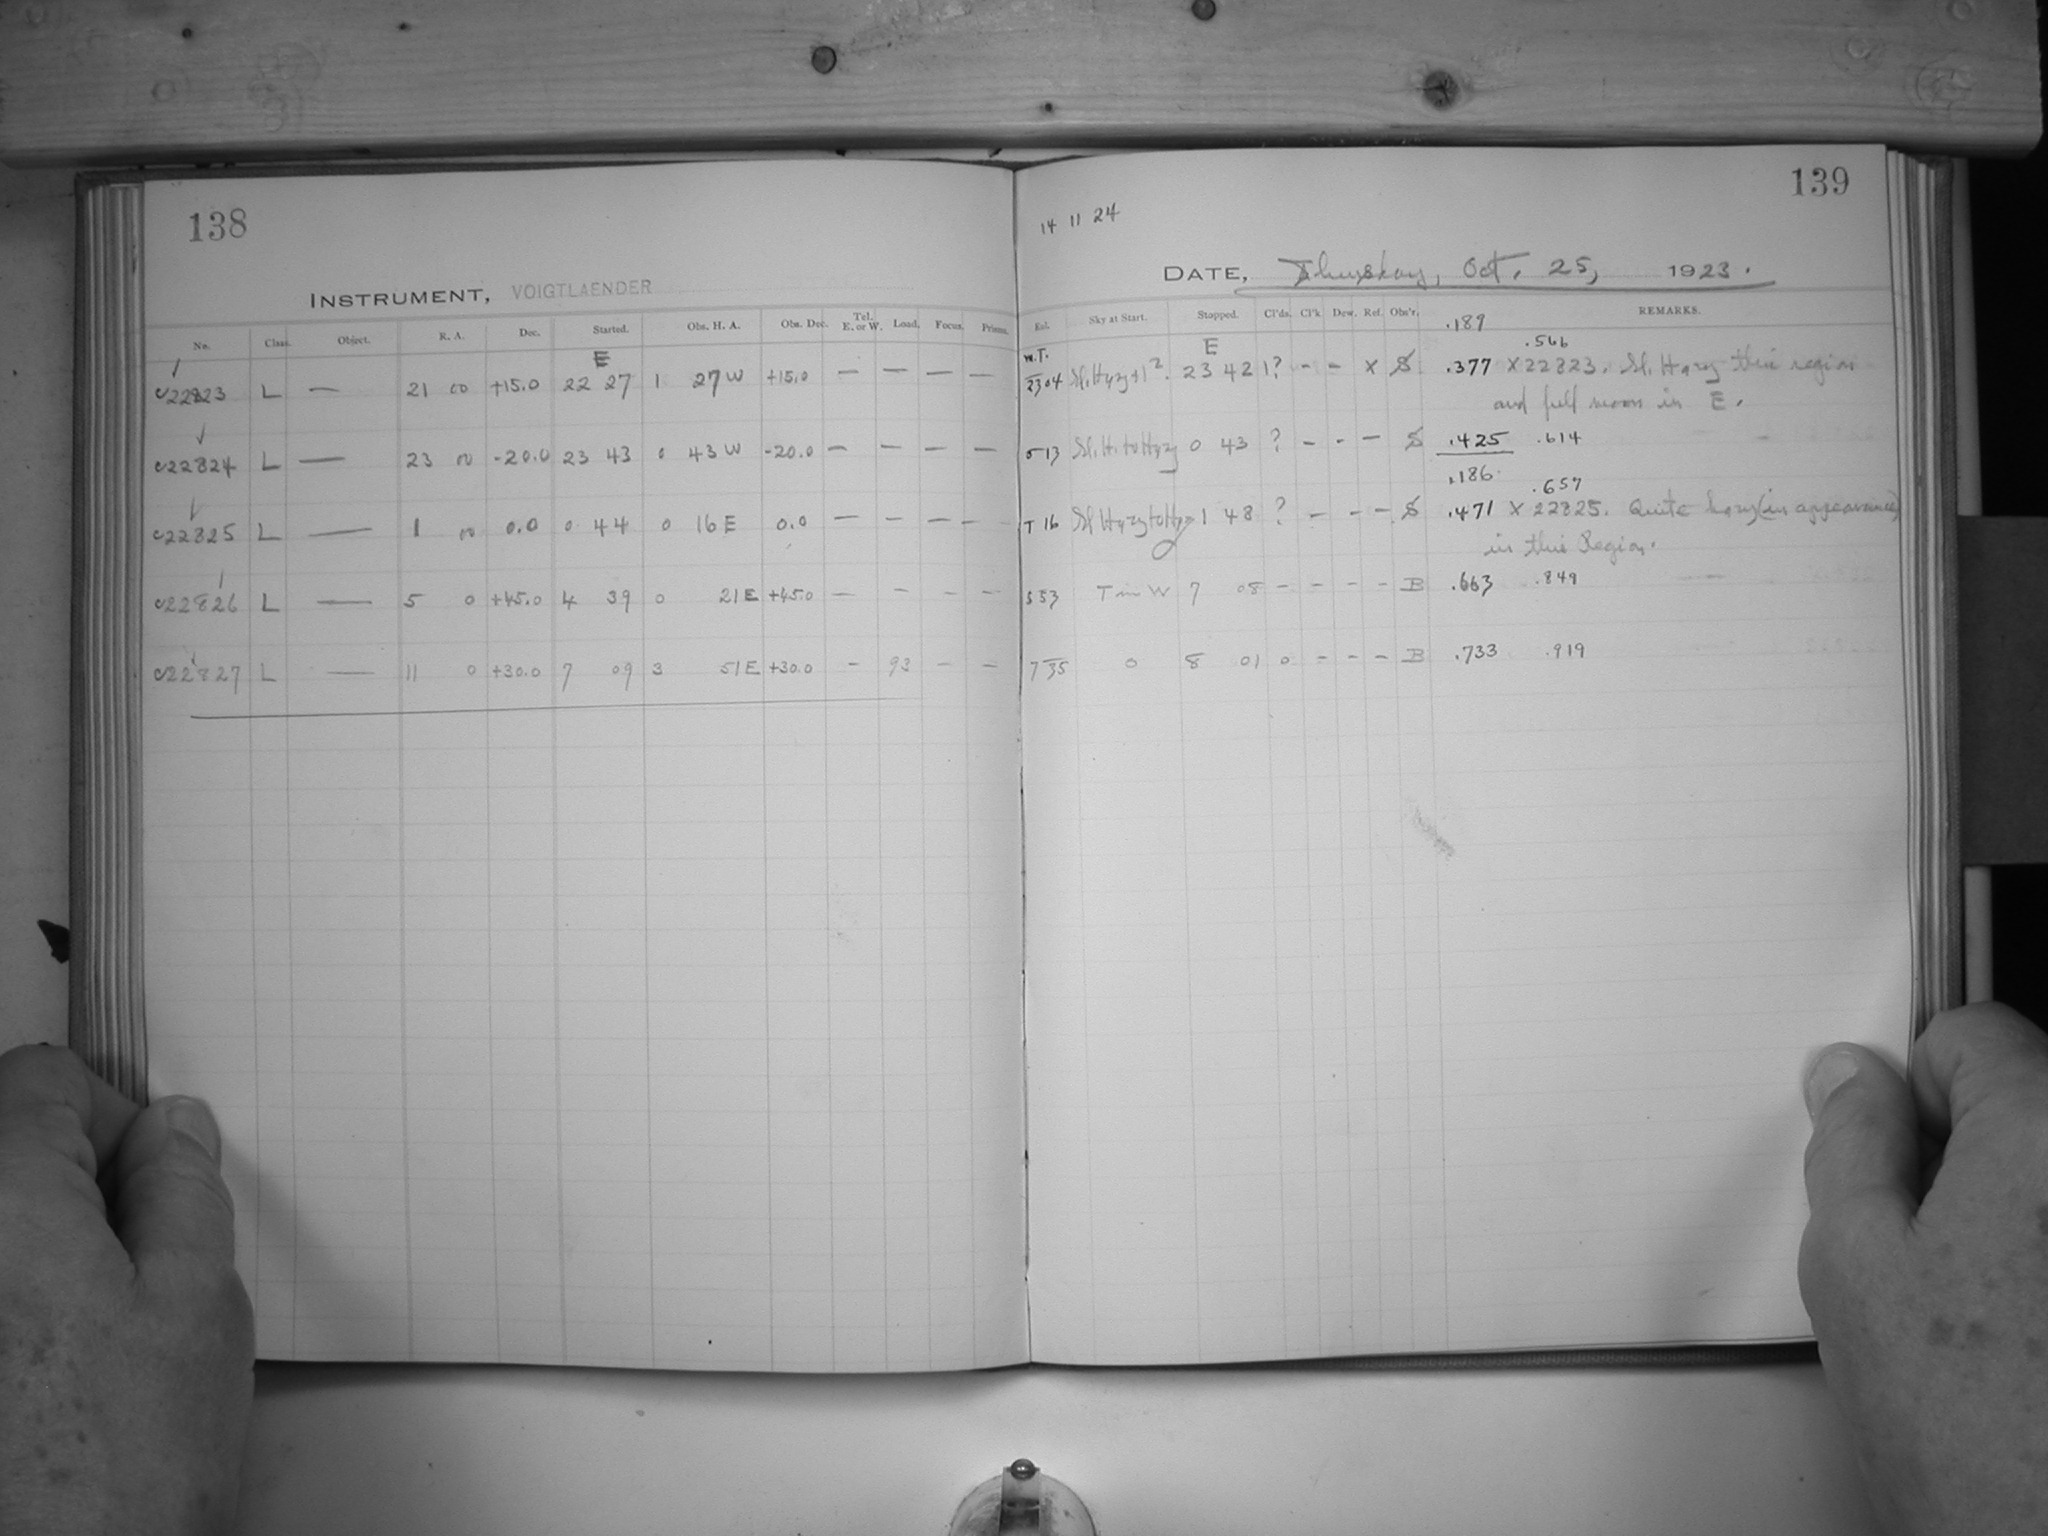 138
INSTRUMENT, VOIGTLAENDER
No. Class. Object. R. A. Dec. Started. Obs. H. A. Obs. Dec. Tel. E. or W. Load. Focus. Prisms.
E
c22823 L — 21 00 +15.0 22 27 1 27 W +15.0 — — — —
c22824 L — 23 00 -20.0 23 43 0 43 W -20.0 — — — —
c22825 L — 1 00 0.0 0 44 0 16 E 0.0 — — — —
c22826 L — 5 0 +45.0 4 39 0 21 E +45.0 — — — —
c22827 L — 11 0 +30.0 7 09 3 51 E +30.0 — 93 — —
139
14 11 24
DATE, Thursday, Oct. 25, 1923.
Sky at Start. Stopped. Cl'ds. Cl'k. Dew. Ref. Obs'r. REMARKS.
.189
W.T. E .566
2304 Sl. Hazy + 1². 23 42 1? - - X S .377 X 22823. Sl. Hazy this region
and full moon in E.
0 13 Sl. H. to Hazy 0 43 ? - - - S .425 .614
.186
.657
T 16 Sl Hazy to Hazy 1 48 ? - - - S .471 X 22825. Quite hazy (in appearance)
in this Region.
5 53 T in W 7 08 - - - - B .663 .849
7 35 0 8 01 0 - - - B .733 .919